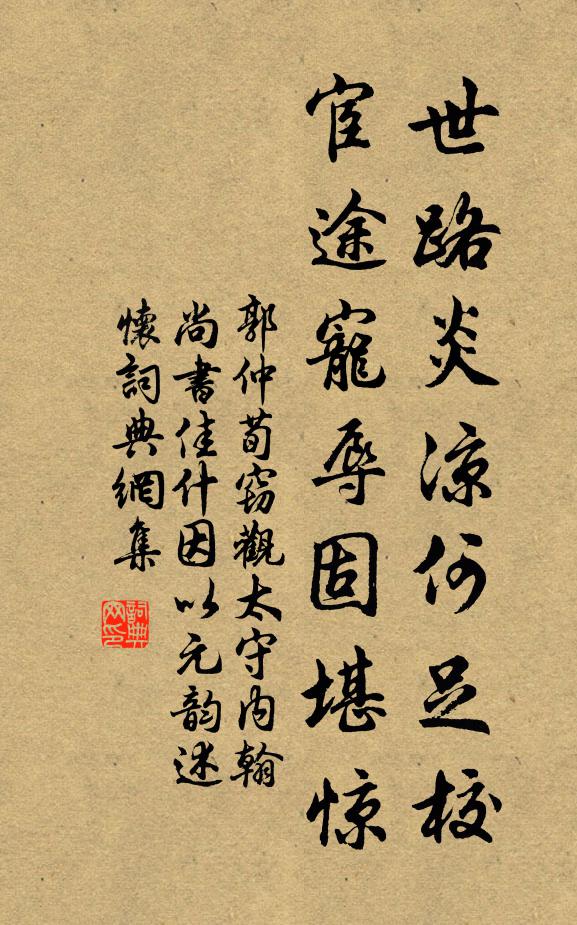 世路炎凉何足校
宦途寵辱固堪惊
郭仲荀竊觀太守内翰
尚書佳什因以元韵述
懷詞典網集
詞典
网印